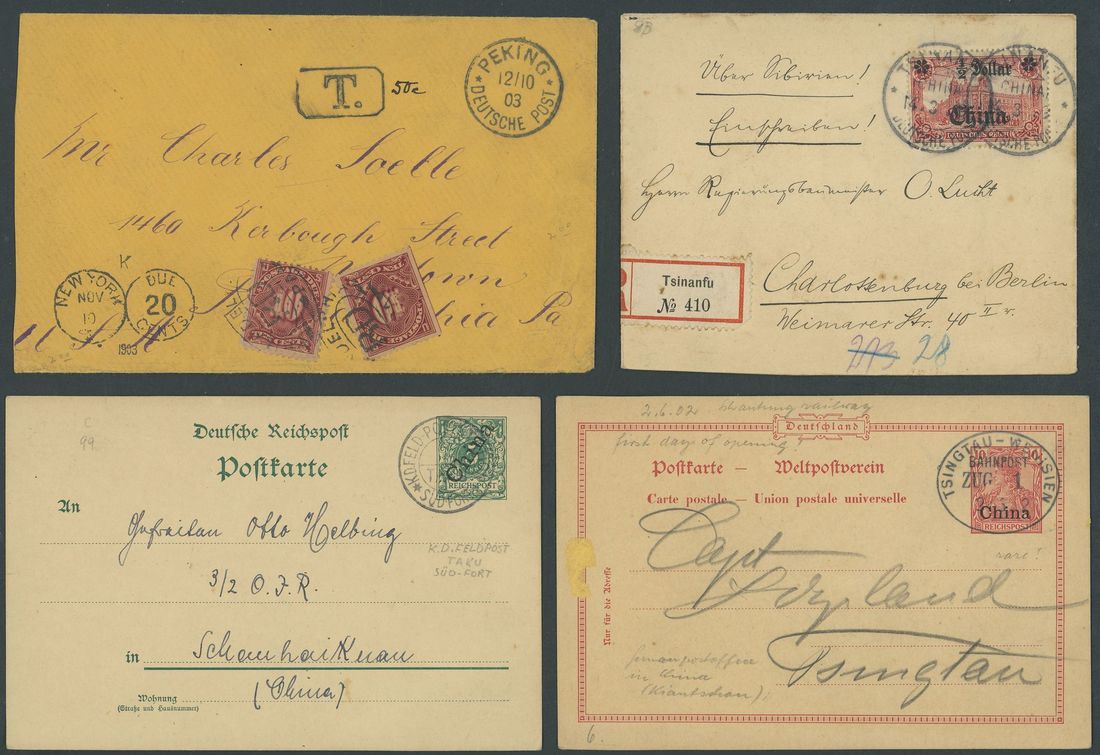 T.
50c
* PEKING *
12/10
03
DEUTSCHE POST
Mr Charles
1460 Street
Pa
K
NEW YORK
NOV
10
1903
DUE
20
CENTS
½ Dollar
China
DEUTSCHES REICH
CHINA
DEUTSCHE POST
Über Sibirien!
Einschreiben!
Herrn Regierungsbaumeister O. Lucht
Charlottenburg bei Berlin
Weimarer Str. 40 II r.
R
Tsinanfu
№ 410
273 28
C
99
Deutsche Reichspost
Postkarte
China
REICHSPOST
An
Gefreiten Otto Helbing
K.D. FELDPOST
TAKU
SÜD-FORT
3/2 O.J.R.
in Schanhaikuan
(China)
Wohnung
(Straße und Hausnummer)
2.6.02 Schantung railway
first day of opening!
Deutschland
Postkarte — Weltpostverein
Carte postale — Union postale universelle
TSINGTAU - WEIHSIEN
BAHNPOST
ZUG 1
10
China
REICHSPOST
rare!
Nur für die Adresse
Capt
Tsingtau
in China
(Kiautschou)
6.